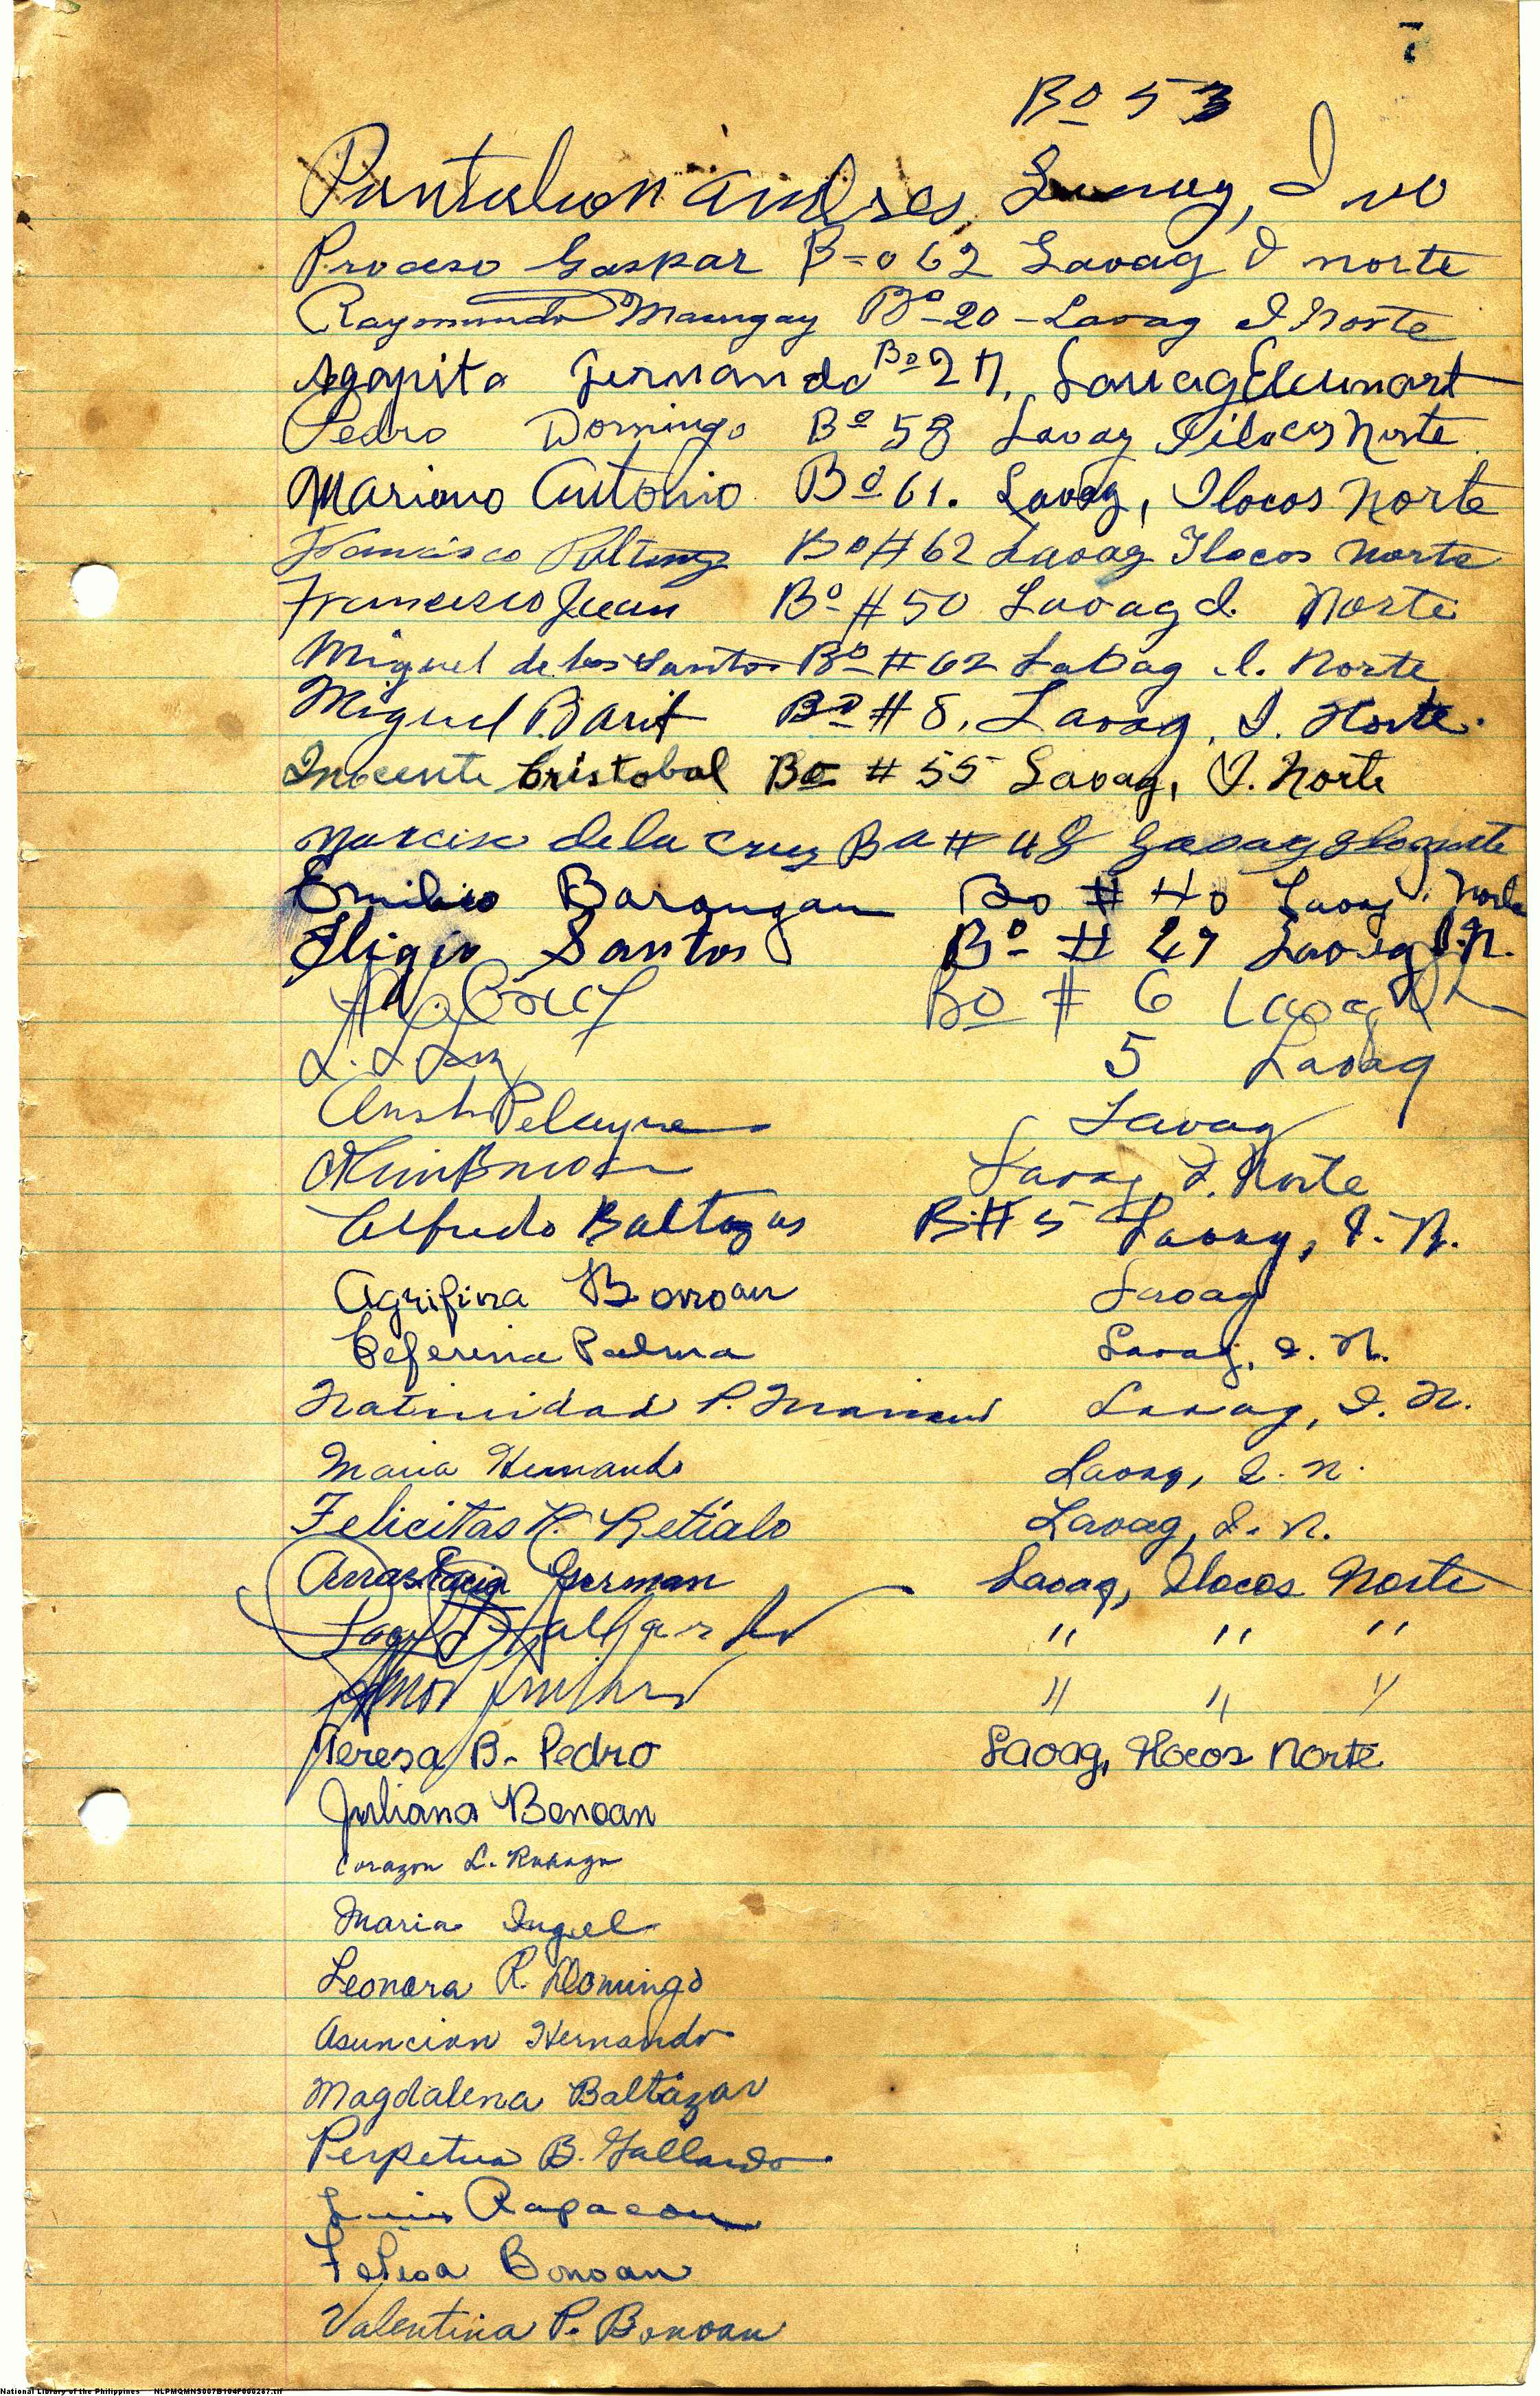 7
Bo 53
Pantaleon Andres, Laoag, I no
Proceso Gaspar B=o 62 Laoag I norte
Raymundo Maungay Bo-20-Laoag I Norte
Agapita Fernando Bo 27, Laoag
Pedro Domingo Bo 58 Laoag Ilocos Norte
Mariano Antonio Bo 61. Laoag, Ilocos Norte
Francisco Bo # 62 Laoag Ilocos Norte
Francisco Juan Bo # 50 Laoag I. Norte
Miguel de los Santos Bo # 62 Laoag I. Norte
Miguel Barit Bo # 8, Laoag, I. Norte.
Inocente Cristobal Bo # 55 Laoag, I. Norte
Narciso de la Cruz Bo # 48 Laoag
Emilio Barongan Bo # 40 Laoag I. Norte
Eligio Santos Bo # 27 Laoag I.N.
Bo # 6 Laoag
5 Laoag
Laoag
Laoag, I. Norte
Alfredo Baltazar B # 5 Laoag, I. N.
Agrifina Bonoan Laoag
Ceferina Palma Laoag, I. N.
Natividad P. Laoag, I. N.
Maria Hernando Laoag, I. N.
Felicitas R. Retialo Laoag, I. N.
Anastacia German Laoag, Ilocos Norte
" " "
" " "
Teresa B. Pedro Laoag, Ilocos Norte
Juliana Bonoan
Corazon L.
Maria
Leonora R. Domingo
Asuncion Hernando
Magdalena Baltazar
Perpetua B. Gallardo
Luis Rapacon
Felisa Bonoan
Valentina P. Bonoan
National Library of the Philippines NLPMQMNS007B104F000267.tif